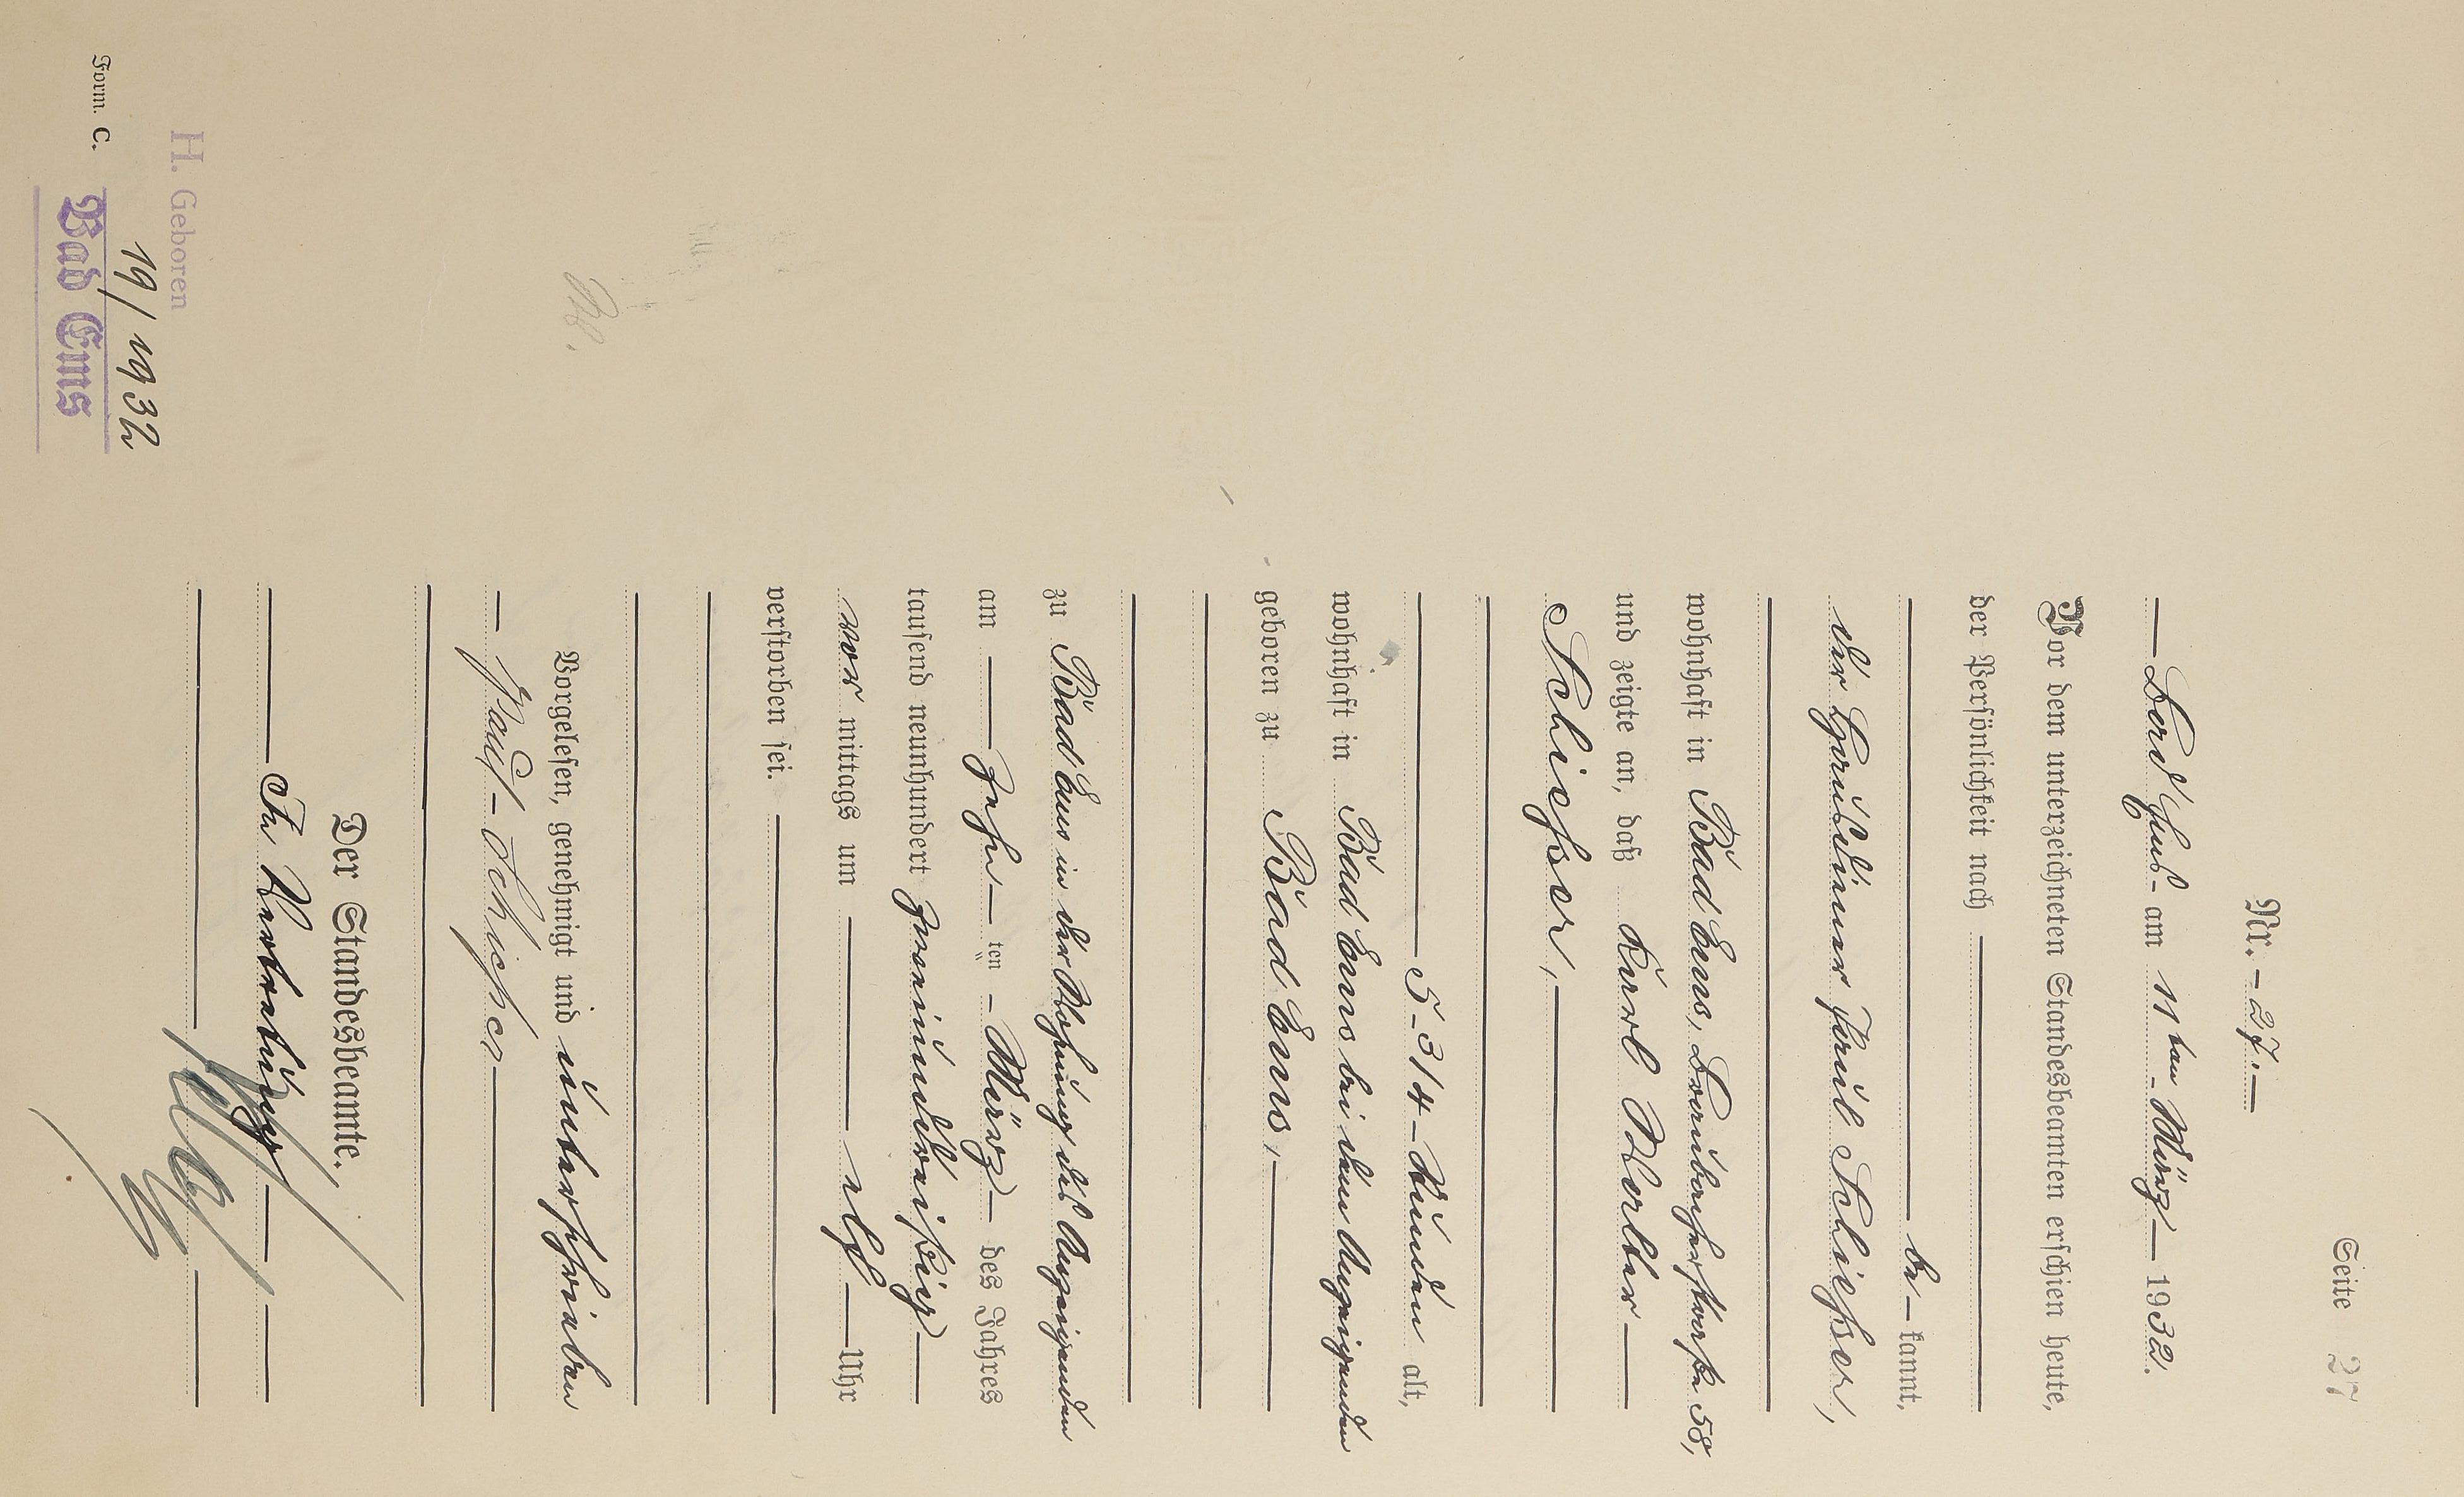 Seite 27
Nr. – 27. –
— Bad Ems – am 11ten – März – 1932.
Vor dem unterzeichneten Standesbeamten erschien heute,
der Persönlichkeit nach
be – kannt,
der Hausdiener Paul Schiesser,
wohnhaft in Bad Ems, Braubacherstraße 58,
und zeigte an, daß Karl Walter
Schiesser,
5–3/4 – Stunden alt,
wohnhaft in Bad Ems bei dem Anzeigenden
geboren zu Bad Ems,
zu Bad Ems in der Wohnung des Anzeigenden
am — zehn – ten – März – des Jahres
tausend neunhundert zweiunddreißig
vor mittags um — elf — Uhr
verstorben sei.
Vorgelesen, genehmigt und unterschrieben
– Paul Schiesser
Der Standesbeamte.
In Vertretung
H. Geboren
19/1932
Form. C.
Bad Ems